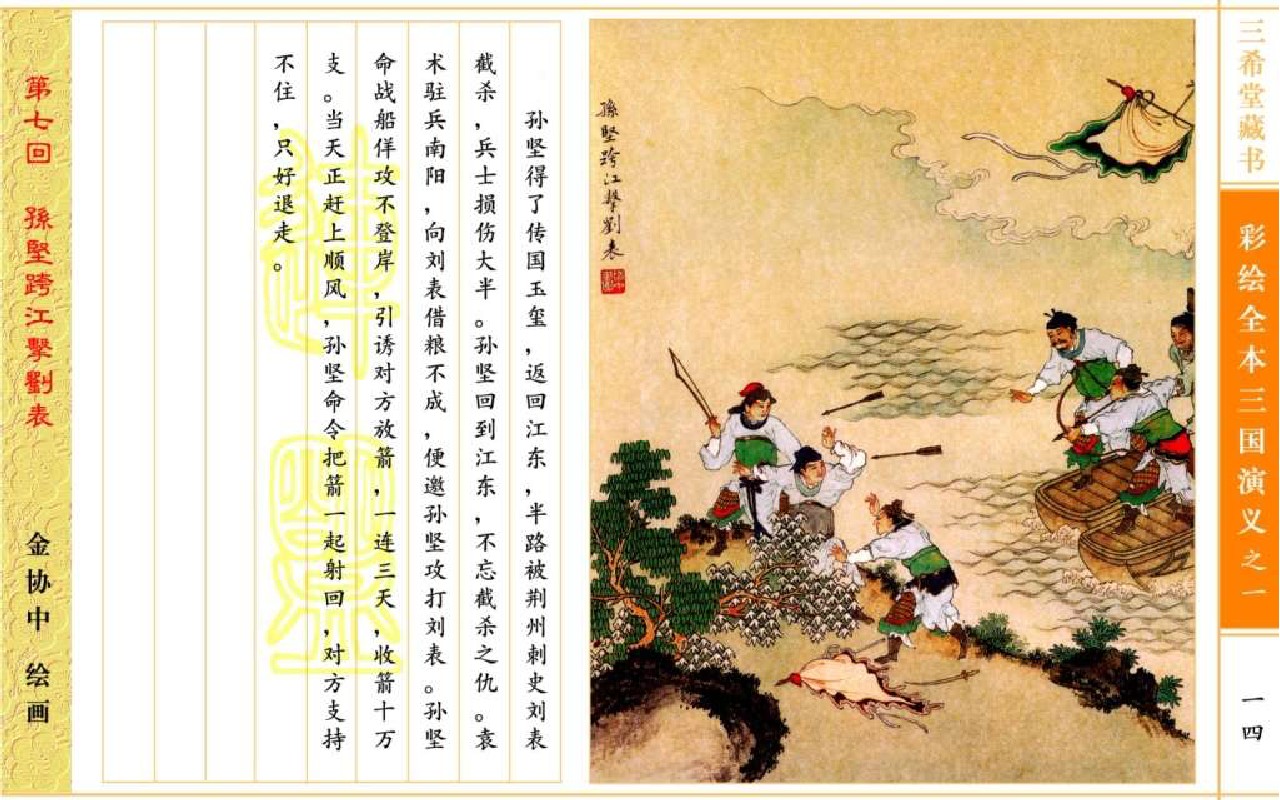 三希堂藏书
彩绘全本三国演义之一
一四
孫堅跨江擊劉表
孙坚得了传国玉玺，返回江东，半路被荆州刺史刘表
截杀，兵士损伤大半。孙坚回到江东，不忘截杀之仇。袁
术驻兵南阳，向刘表借粮不成，便邀孙坚攻打刘表。孙坚
命战船佯攻不登岸，引诱对方放箭，一连三天，收箭十万
支。当天正赶上顺风，孙坚命令把箭一起射回，对方支持
不住，只好退走。
第七回 孫堅跨江擊劉表
金协中 绘画